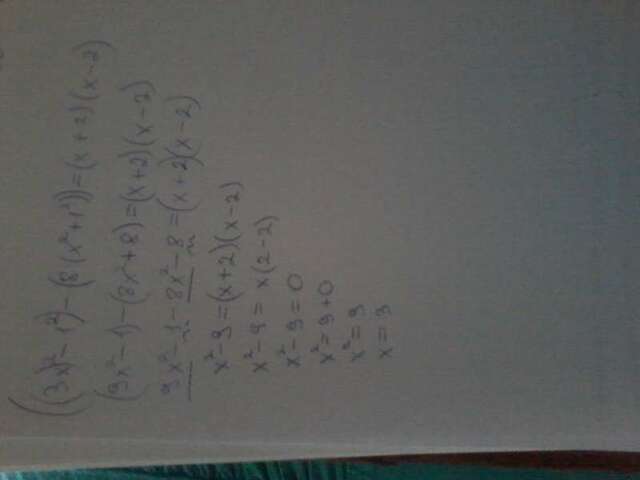 ((3x)²-1²)-(8(x²+1²))=(x+2)(x-2)
(9x²-1)-(8x²+8)=(x+2)(x-2)
9x²-1-8x²-8=(x+2)(x-2)
x²-9=(x+2)(x-2)
x²-9=x(2-2)
x²-9=0
x²=9+0
x²=9
x=3